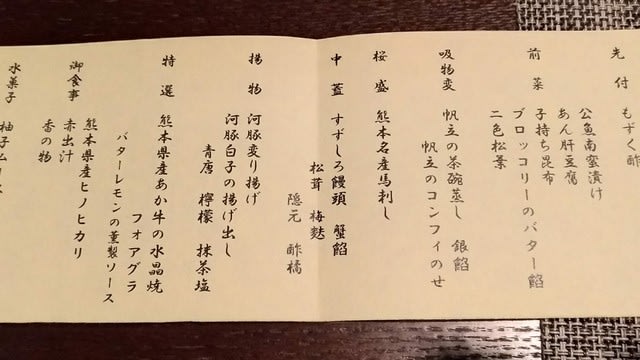 先付 もずく酢
前菜 公魚南蛮漬け
あん肝豆腐
子持ち昆布
ブロッコリーのバター餡
二色松葉
吸物変 帆立の茶碗蒸し 銀餡
帆立のコンフィのせ
桜盛 熊本名産馬刺し
中蓋 すずしろ饅頭 蟹餡
松茸 梅麩
隠元 酢橘
揚物 河豚変り揚げ
河豚白子の揚げ出し
青唐 檸檬 抹茶塩
特選 熊本県産あか牛の水晶焼
フォアグラ
バターレモンの薫製ソース
御食事 熊本県産ヒノヒカリ
赤出汁
香の物
水菓子 柚子ムース